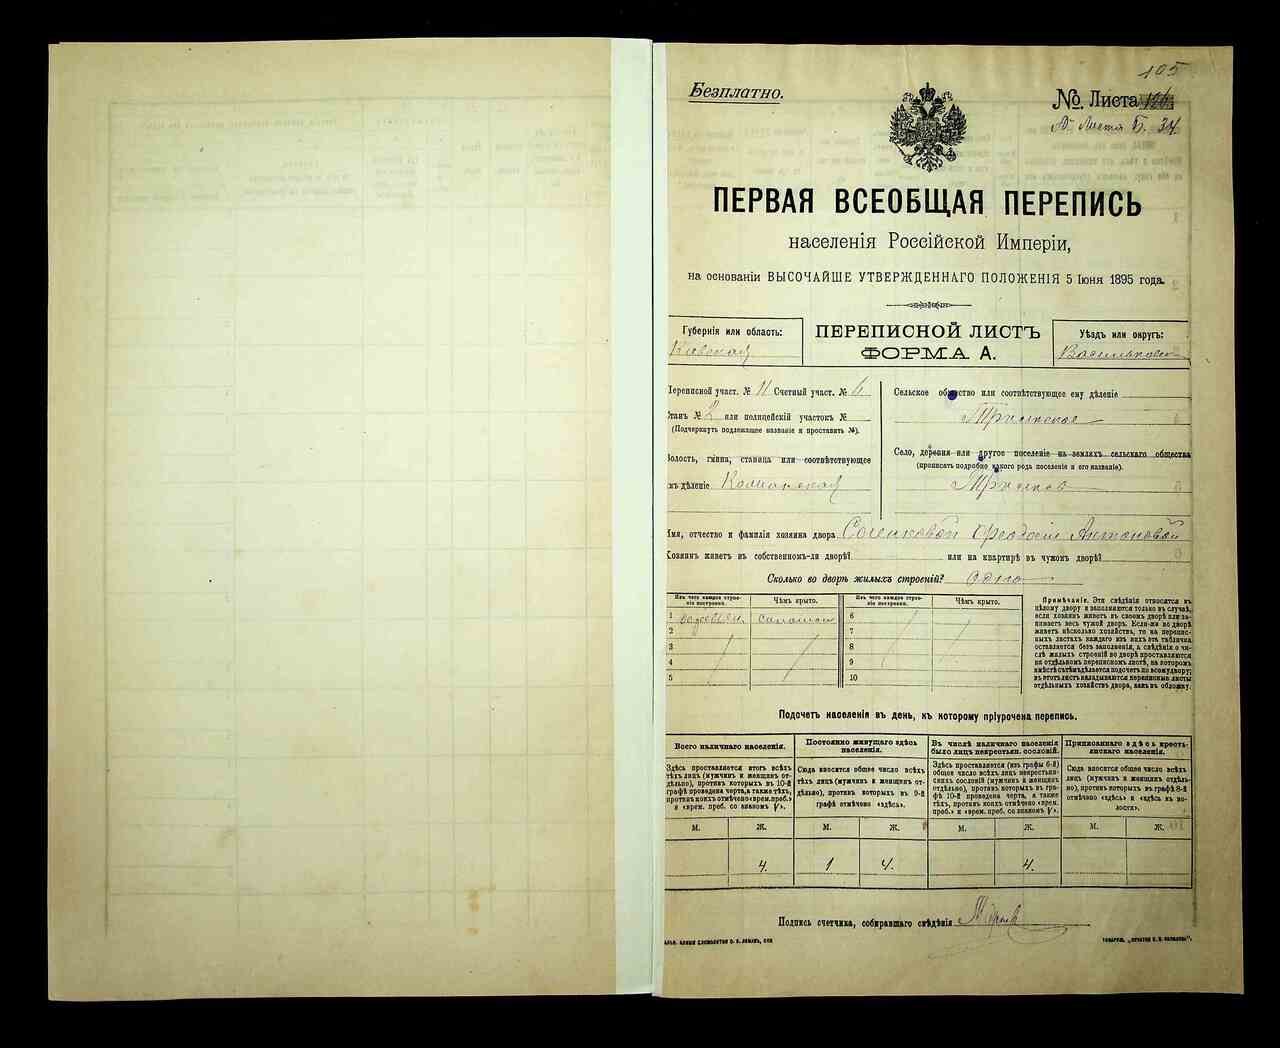 105
Безплатно.
№. Листа 126.
№ Листа Б. 34
ПЕРВАЯ ВСЕОБЩАЯ ПЕРЕПИСЬ
населенія Россійской Имперіи,
на основаніи ВЫСОЧАЙШЕ УТВЕРЖДЕННАГО ПОЛОЖЕНІЯ 5 Іюня 1895 года.
Губернія или область:
Кіевская
ПЕРЕПИСНОЙ ЛИСТЪ
ФОРМА А.
Уѣздъ или округъ:
Васильковск
Переписной участ. № 11 Счетный участ. № 6
Станъ № 2 или полицейскій участокъ №
(Подчеркнуть подлежащее названіе и проставить №).
Волость, гмина, станица или соотвѣтствующее
имъ дѣленіе
Сельское общество или соотвѣтствующее ему дѣленіе
Трилѣсское
Село, деревня или другое поселеніе на земляхъ сельскаго общества
(прописать подробно какого рода поселеніе и его названіе).
Имя, отчество и фамилія хозяина двора Ѳеодосіи Антоновой
Хозяинъ живетъ въ собственномъ-ли дворѣ? или на квартирѣ въ чужомъ дворѣ?
Сколько во дворѣ жилыхъ строеній? одно
Изъ чего каждое строеніе построено.
Чѣмъ крыто.
Изъ чего каждое строеніе построено.
Чѣмъ крыто.
1 деревян. соломой 6
2 7
3 8
4 9
5 10
Примѣчаніе. Эти свѣдѣнія относятся къ
цѣлому двору и заполняются только въ случаѣ,
если хозяинъ живетъ въ своемъ дворѣ или занимаетъ весь чужой дворъ. Если-же во дворѣ
живетъ нѣсколько хозяйствъ, то на переписныхъ листахъ каждаго изъ нихъ эта табличка
оставляется безъ заполненія, а свѣдѣнія о числѣ жилыхъ строеній во дворѣ проставляются
на отдѣльномъ переписномъ листѣ, на которомъ
вмѣстѣ съ тѣмъ дѣлается подсчетъ по всему двору;
въ этотъ листъ вкладываются переписные листы
отдѣльныхъ хозяйствъ двора, какъ въ обложку.
Подсчетъ населенія въ день, къ которому пріурочена перепись.
Всего наличнаго населенія.
Постоянно живущаго здѣсь населенія.
Въ числѣ наличнаго населенія было лицъ некрестьян. сословій.
Приписаннаго здѣсь крестьянскаго населенія.
Здѣсь проставляется итогъ всѣхъ
тѣхъ лицъ (мужчинъ и женщинъ отдѣльно), противъ которыхъ въ 10-й
графѣ проведена черта, а также тѣхъ,
противъ коихъ отмѣчено «врем. преб.»
и «врем. преб. со знакомъ V».
Сюда вносится общее число всѣхъ
тѣхъ лицъ (мужчинъ и женщинъ отдѣльно), противъ которыхъ въ 9-й
графѣ отмѣчено «здѣсь».
Здѣсь проставляется (изъ графы 6-й)
общее число всѣхъ лицъ некрестьянскихъ сословій (мужчинъ и женщинъ
отдѣльно), противъ которыхъ въ графѣ 10-й проведена черта, а также
тѣхъ, противъ коихъ отмѣчено «врем.
преб.» и «врем. преб. со знакомъ V».
Сюда вносится общее число всѣхъ
лицъ (мужчинъ и женщинъ отдѣльно), противъ которыхъ въ графѣ 8-й
отмѣчено «здѣсь» и «здѣсь въ волости».
М. Ж. М. Ж. М. Ж. М. Ж.
4. 1 4. 4.
Подпись счетчика, собиравшаго свѣдѣнія